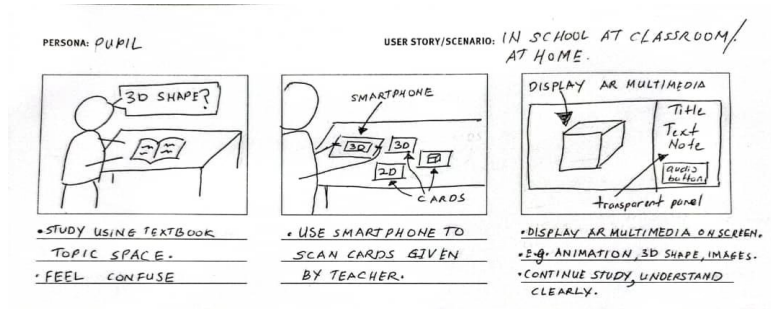 PERSONA: PUPIL
USER STORY/SCENARIO: IN SCHOOL AT CLASSROOM/
AT HOME.
3D SHAPE?
• STUDY USING TEXTBOOK
TOPIC SPACE.
• FEEL CONFUSE
SMARTPHONE
3D
3D
2D
CARDS
• USE SMARTPHONE TO
SCAN CARDS GIVEN
BY TEACHER.
DISPLAY AR MULTIMEDIA
Title
Text
Note
audio
button
transparent panel
• DISPLAY AR MULTIMEDIA ON SCREEN.
• E.g. ANIMATION, 3D SHAPE, IMAGES.
• CONTINUE STUDY, UNDERSTAND
CLEARLY.